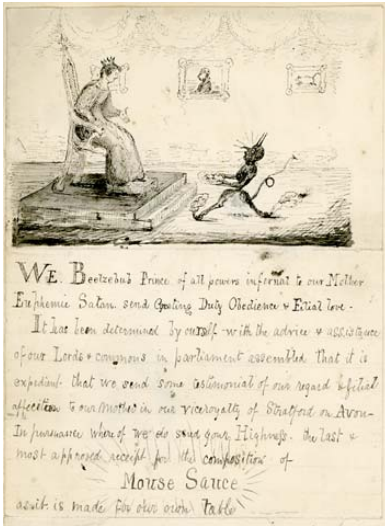 WE. Beelzebub Prince of all powers infernal to our Mother
Euphemia Satan send Greeting Duty Obedience & Filial love -
It has been determined by ourself with the advice & assistance
of our Lords & commons in parliament assembled that it is
expedient that we send some testimonial of our regard & filial
affection to our Mother in our viceroyalty of Stratford on Avon -
In pursuance where of we do send your Highness the last &
most approved receipt for the composition of
Mouse Sauce
as it is made for our own table